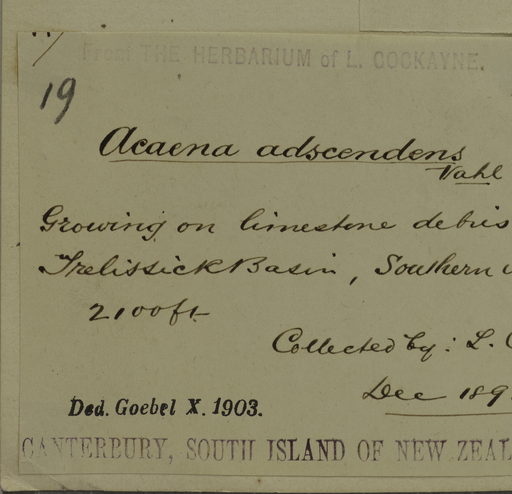 From THE HERBARIUM of L. COCKAYNE.
19
Acaena adscendens
Vahl
Growing on limestone debris
Trelissick Basin, Southern
2100 ft
Collected by: L.
Dec 189
Ded. Goebel X. 1903.
CANTERBURY, SOUTH ISLAND OF NEW ZEAL